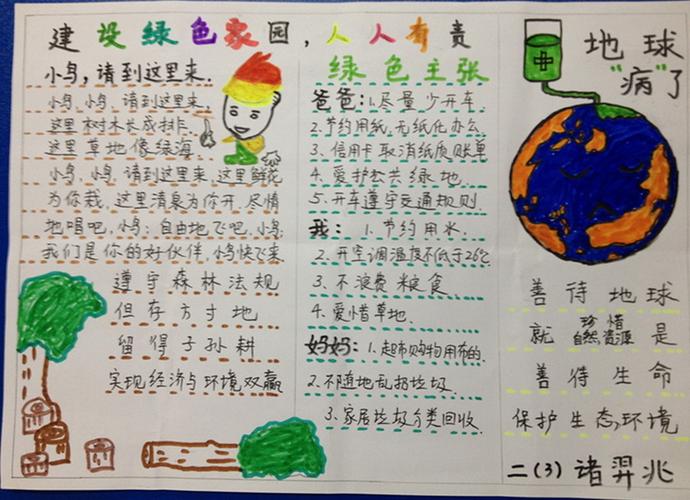 建设绿色家园，人人有责
小鸟，请到这里来.
小鸟，小鸟，请到这里来，
这里树木长成排.
这里草地像绿海
小鸟，小鸟，请到这里来，这里鲜花
为你栽，这里清泉为你开，尽情
地唱吧，小鸟；自由地飞吧，小鸟；
我们是你的好伙伴，小鸟快飞来
遵守森林法规
但存方寸地
留得子孙耕
实现经济与环境双赢
绿色主张
爸爸：1.尽量少开车
2.节约用纸，无纸化办公
3.信用卡取消纸质账单
4.爱护公共绿地.
5.开车遵守交通规则.
我：1.节约用水.
2.开空调温度不低于26℃
3.不浪费粮食
4.爱惜草地.
妈妈：1.超市购物用布的.
2.不随地乱扔垃圾.
3.家居垃圾分类回收.
地球
"病"了
善待地球
就珍惜自然资源是
善待生命
保护生态环境
二(3) 诸羿兆